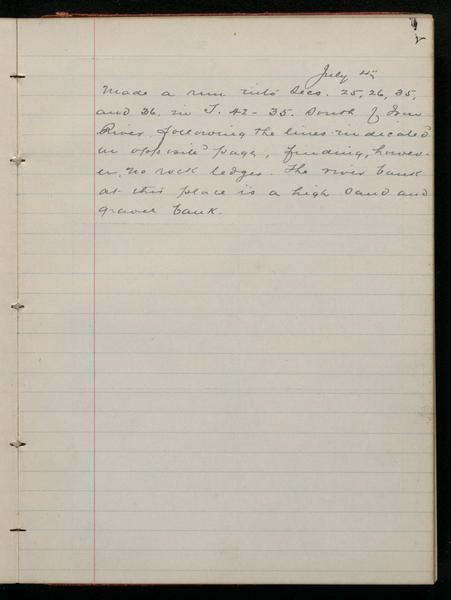 2
July 4,
Made a run into Secs. 25, 26, 35,
and 36. in T. 42 - 35. South of Iron
River, following the lines indicated
on opposite page, finding, howev-
er, no rock ledges. The river bank
at this place is a high sand and
gravel bank.